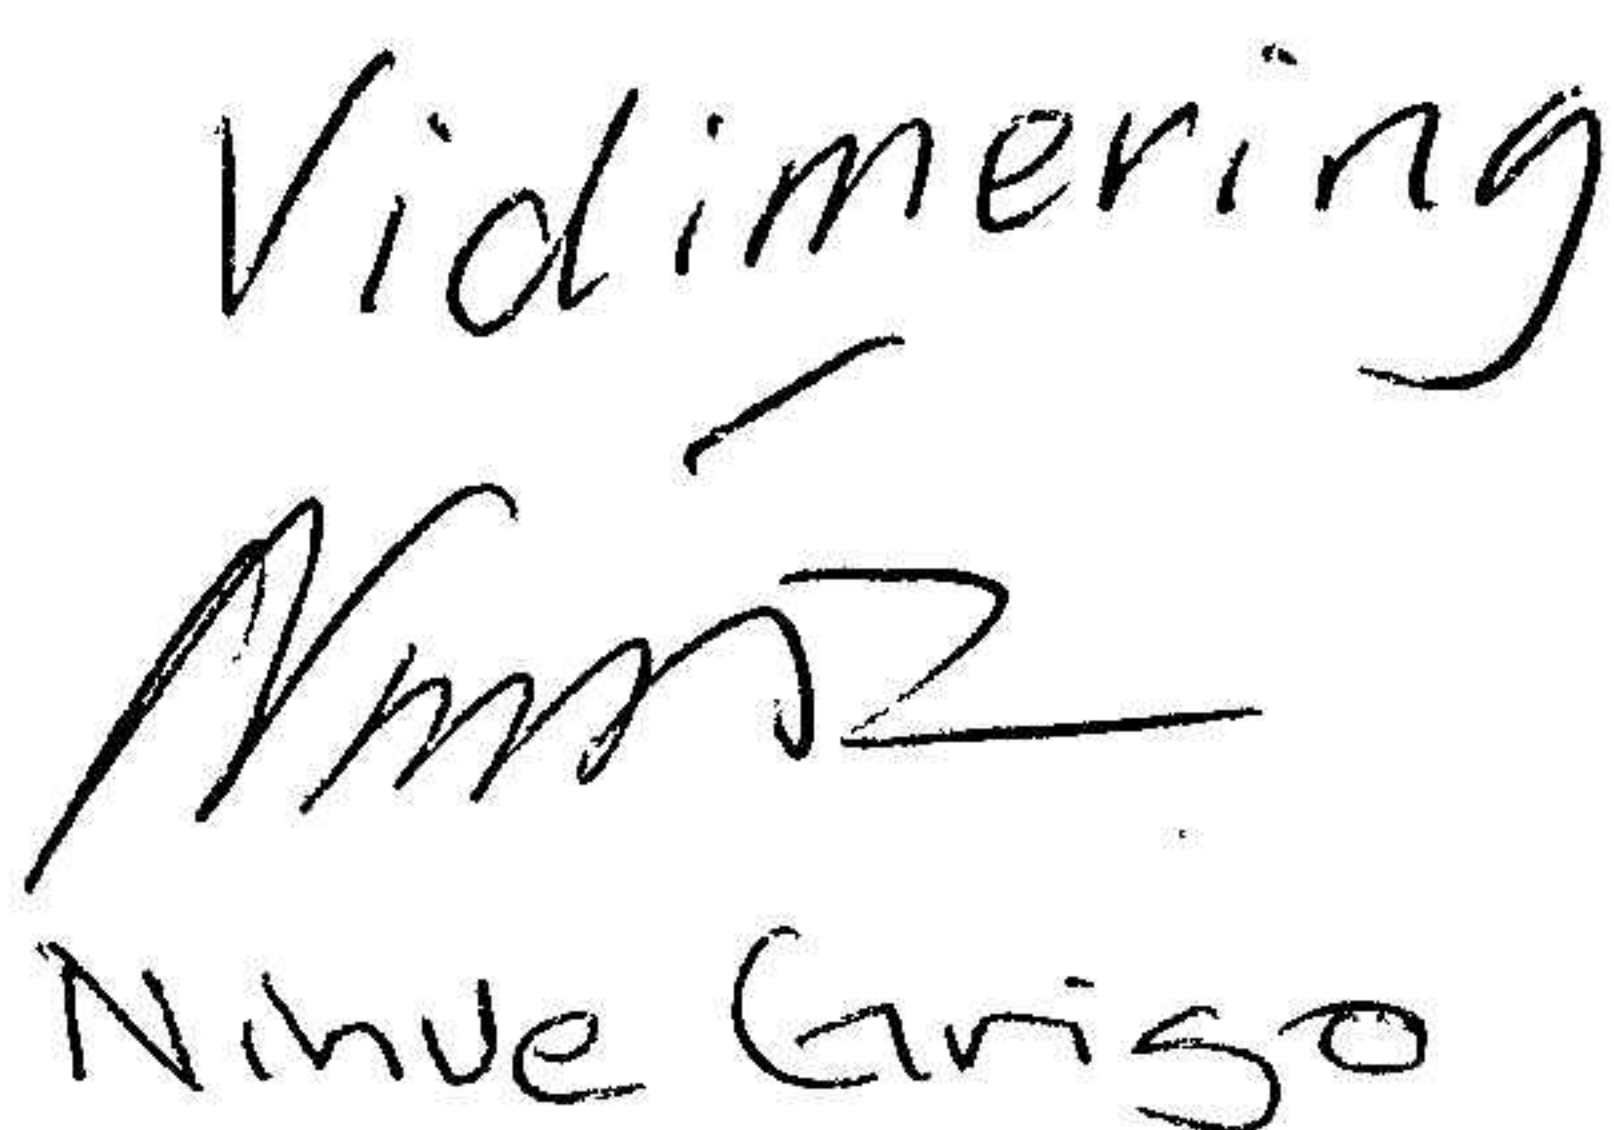 Vidimering
Ninve Grigo